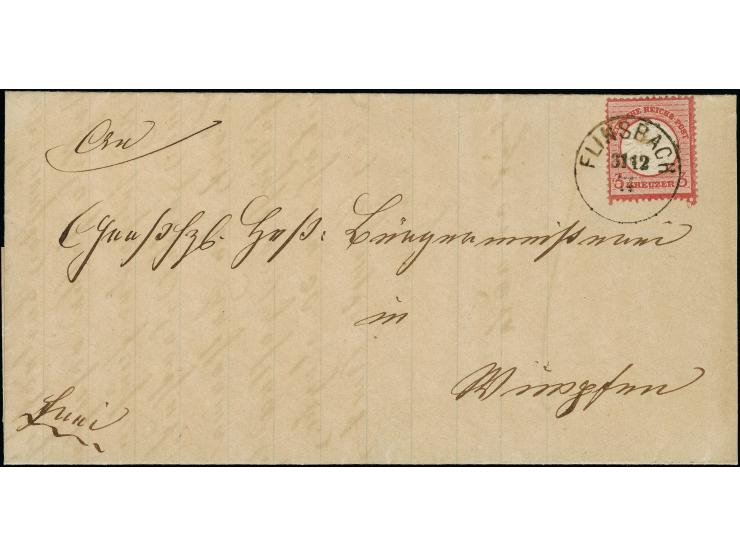 An
DEUTSCHE REICHS-POST
FLINSBACH
31 12
74
3 KREUZER 3
Grossh. Hess: Bürgermeisterei
in
Wimpfen
frei